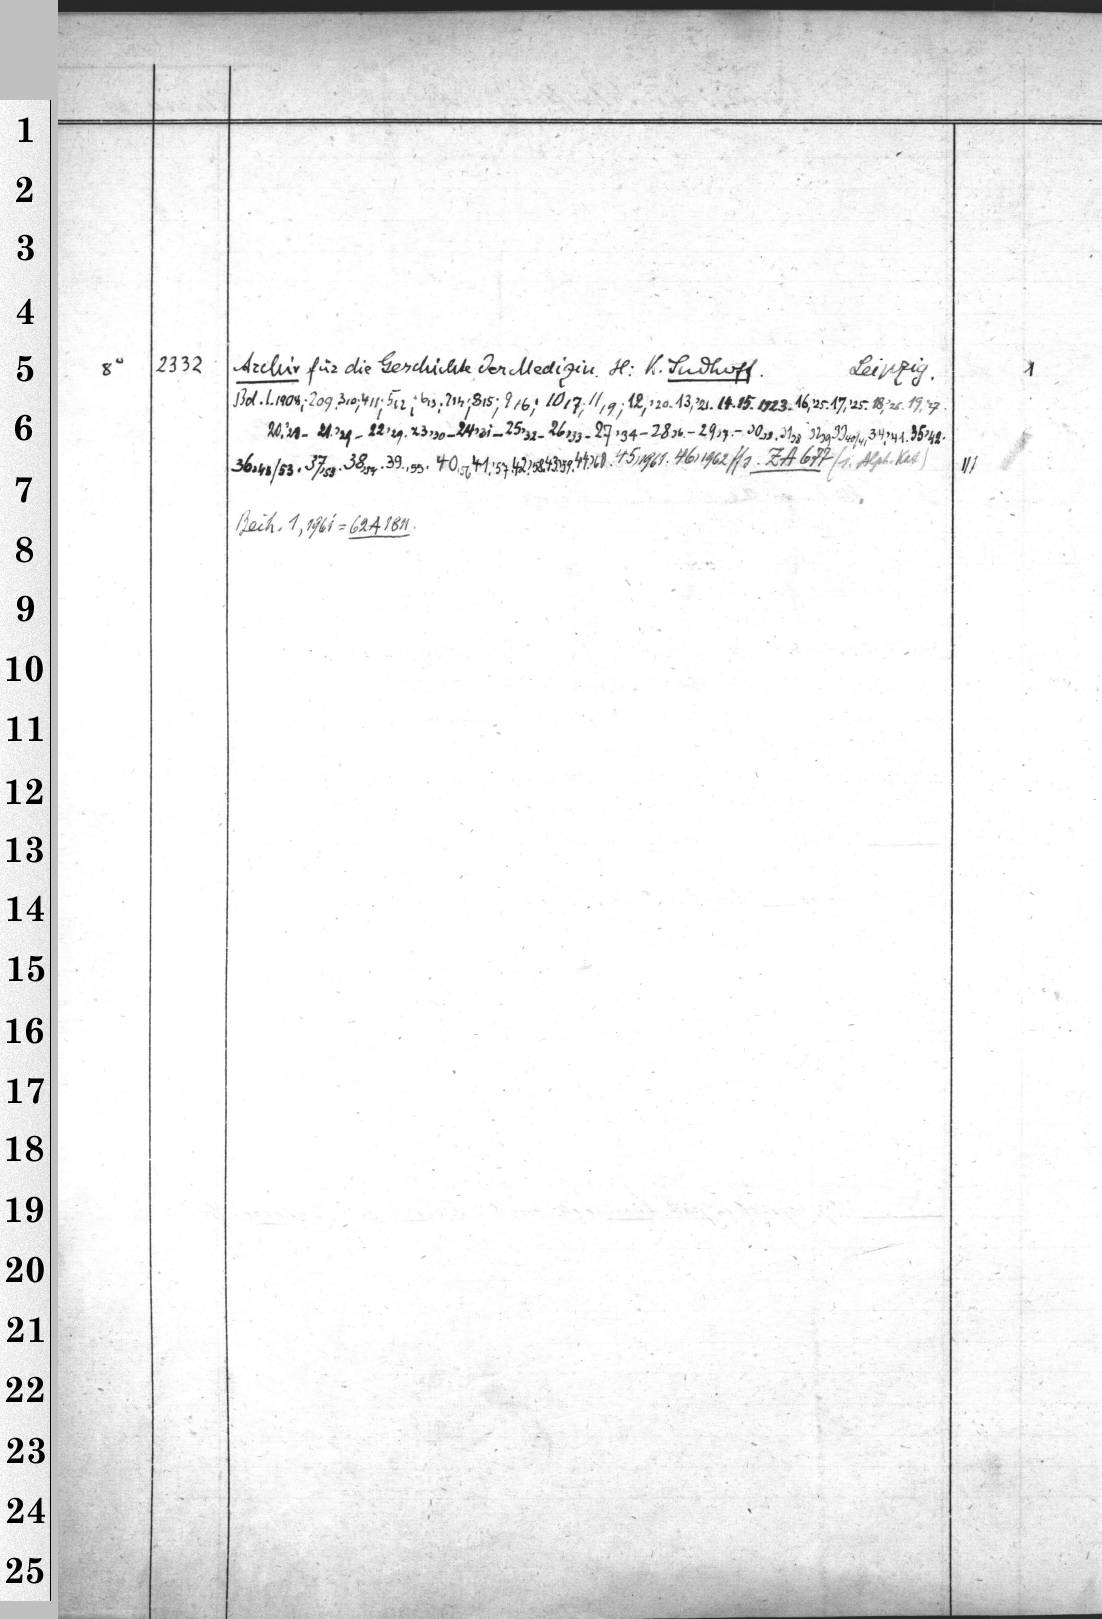 1
2
3
4
5
6
7
8
9
10
11
12
13
14
15
16
17
18
19
20
21
22
23
24
25
8° 2332 Archiv für die Geschichte der Medizin. H: K. Sudhoff. Leipzig. 1
Bd. 1.1908; 2 09. 3 10; 4 11; 5 12; 6 13; 7 14; 8 15; 9 16; 10 17; 11, 9; 12, '20. 13, '21. 14. 15. 1923. 16, '25. 17, '25. 18, '26. 19, '27.
20, '28 - 21, '29 - 22, '29. 23, '30 - 24, '31 - 25, '32 - 26, '33 - 27, '34 - 28 36. - 29 37. - 30 38. 31 38 32 39 33 40/41, 34, '41. 35, '42.
36, 48/53. 37, 53. 38, 54. 39, '55. 40, 56 41, '57. 42, '58. 43, '59. 44, '60. 45, 1961. 46, 1962 ff s. ZA 677 (s. Alph. Kat) III
Beih. 1, 1961 = 62 A 1811.